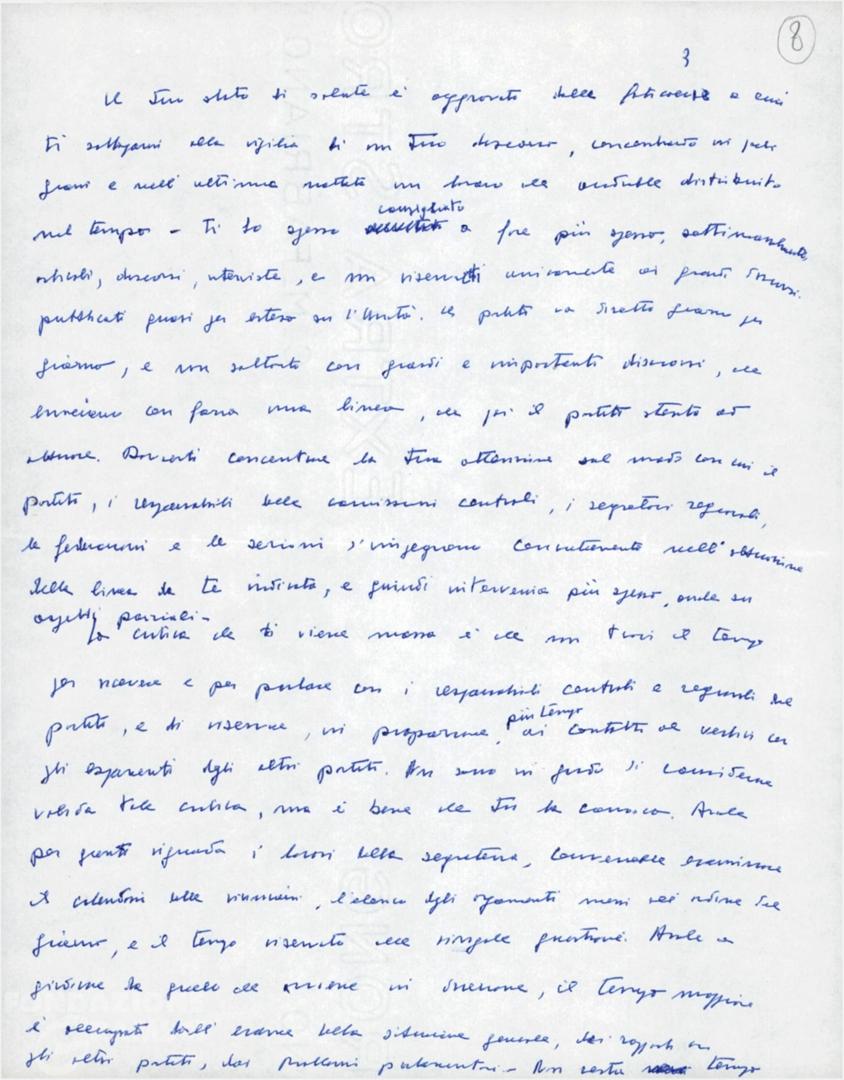 8
3
Il Tuo stato di salute è aggravato dalle faticacce a cui
ti sottoponi alla vigilia di un Tuo discorso, concentrato in pochi
giorni e nell'ultima nottata un lavoro che andrebbe distribuito
consigliato
nel tempo - Ti ho spesso a fare più spesso, settimanalmente,
articoli, discorsi, interviste, e non riservarti unicamente ai grandi discorsi
pubblicati quasi per esteso su l'Unità. Il partito va diretto giorno per
giorno, e non soltanto con grandi e importanti discorsi, che
enunciano con forza una linea, che poi il partito stenta ad
attuare. Dovresti concentrare la Tua attenzione sul modo con cui il
partito, i responsabili delle commissioni centrali, i segretari regionali,
le federazioni e le sezioni s'impegnano concretamente nell'attuazione
della linea da te indicata, e quindi intervenire più spesso, anche su
aspetti parziali -
La critica che ti viene mossa è che non trovi il tempo
per ricevere e per parlare con i responsabili centrali e regionali del
più tempo
partito, e di riservare, in proporzione, ai contatti al vertice con
gli esponenti degli altri partiti. Non sono in grado di considerare
valida tale critica, ma è bene che Tu la conosca. Anche
per quanto riguarda i lavori della segreteria, converrebbe esaminare
il calendario delle riunioni, l'elenco degli argomenti messi all'ordine del
giorno, e il tempo riservato alle singole questioni. Anche a
giudicare da quello che avviene in direzione, il tempo maggiore
è occupato dall'esame della situazione generale, dei rapporti con
gli altri partiti, dai problemi parlamentari - Non resta tempo